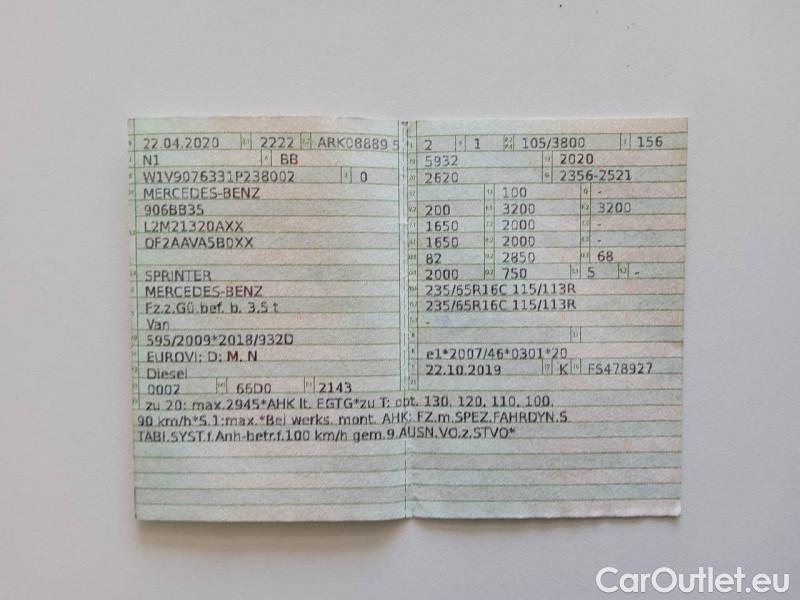 22.04.2020 2222 ARK08889 5
N1 BB
W1V9076331P238002 0
MERCEDES-BENZ
906BB35
L2M21320AXX
OF2AAVA5B0XX
SPRINTER
MERCEDES-BENZ
Fz.z.Gü.bef. b. 3,5 t
Van
595/2009*2018/932D
EUROVI; D; M, N
Diesel
0002 66D0 2143
2 1 105/3800 156
5932 2020
2620 2356-2521
- 100 -
200 3200 3200
1650 2000 -
1650 2000 -
82 2850 68
2000 750 5 -
235/65R16C 115/113R
235/65R16C 115/113R
-
e1*2007/46*0301*20
22.10.2019 K FS478927
zu 20: max.2945*AHK lt. EGTG*zu T: opt. 130, 120, 110, 100,
90 km/h*S.1:max.*Bei werks. mont. AHK: FZ.m.SPEZ.FAHRDYN.S
TABI.SYST.f.Anh-betr.f.100 km/h gem.9.AUSN.VO.z.STVO*
CarOutlet.eu